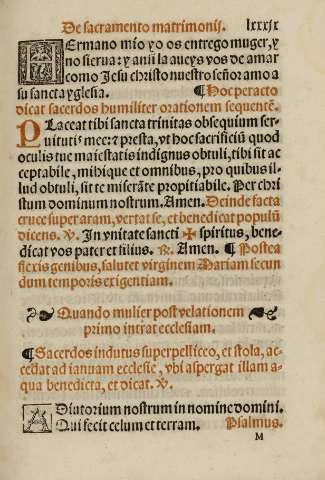 De sacramento matrimonij. lxxxix
HErmano mio yo os entrego muger, y
no sierua: y anii la aueys vos de amar
como Jesu christo nuestro señor amo a
su sancta yglesia. ¶ Hoc peracto
dicat sacerdos humiliter orationem sequentē.
PLaceat tibi sancta trinitas obsequium ser-
uitutis meę: & presta, vt hoc sacrificiū quod
oculis tue maiestatis indignus obtuli, tibi sit ac
ceptabile, mihique et omnibus, pro quibus il-
lud obtuli, sit te miserāte propitiabile. Per chri
stum dominum nostrum. Amen. Deinde facta
cruce super aram, vertat se, et benedicat populū
dicens. ℣. In vnitate sancti ✠ spiritus, bene-
dicat vos pater et filius. ℟. Amen. ¶ Postea
flexis genibus, salutet virginem Mariam secun
dum temporis exigentiam.
❧ Quando mulier post velationem ❧
primo intrat ecclesiam.
¶ Sacerdos indutus superpelliceo, et stola, ac-
cedat ad ianuam ecclesie, vbi aspergat illam a-
qua benedicta, et dicat. ℣.
ADiutorium nostrum in nomine domini.
Qui fecit celum et terram. Psalmus.
M